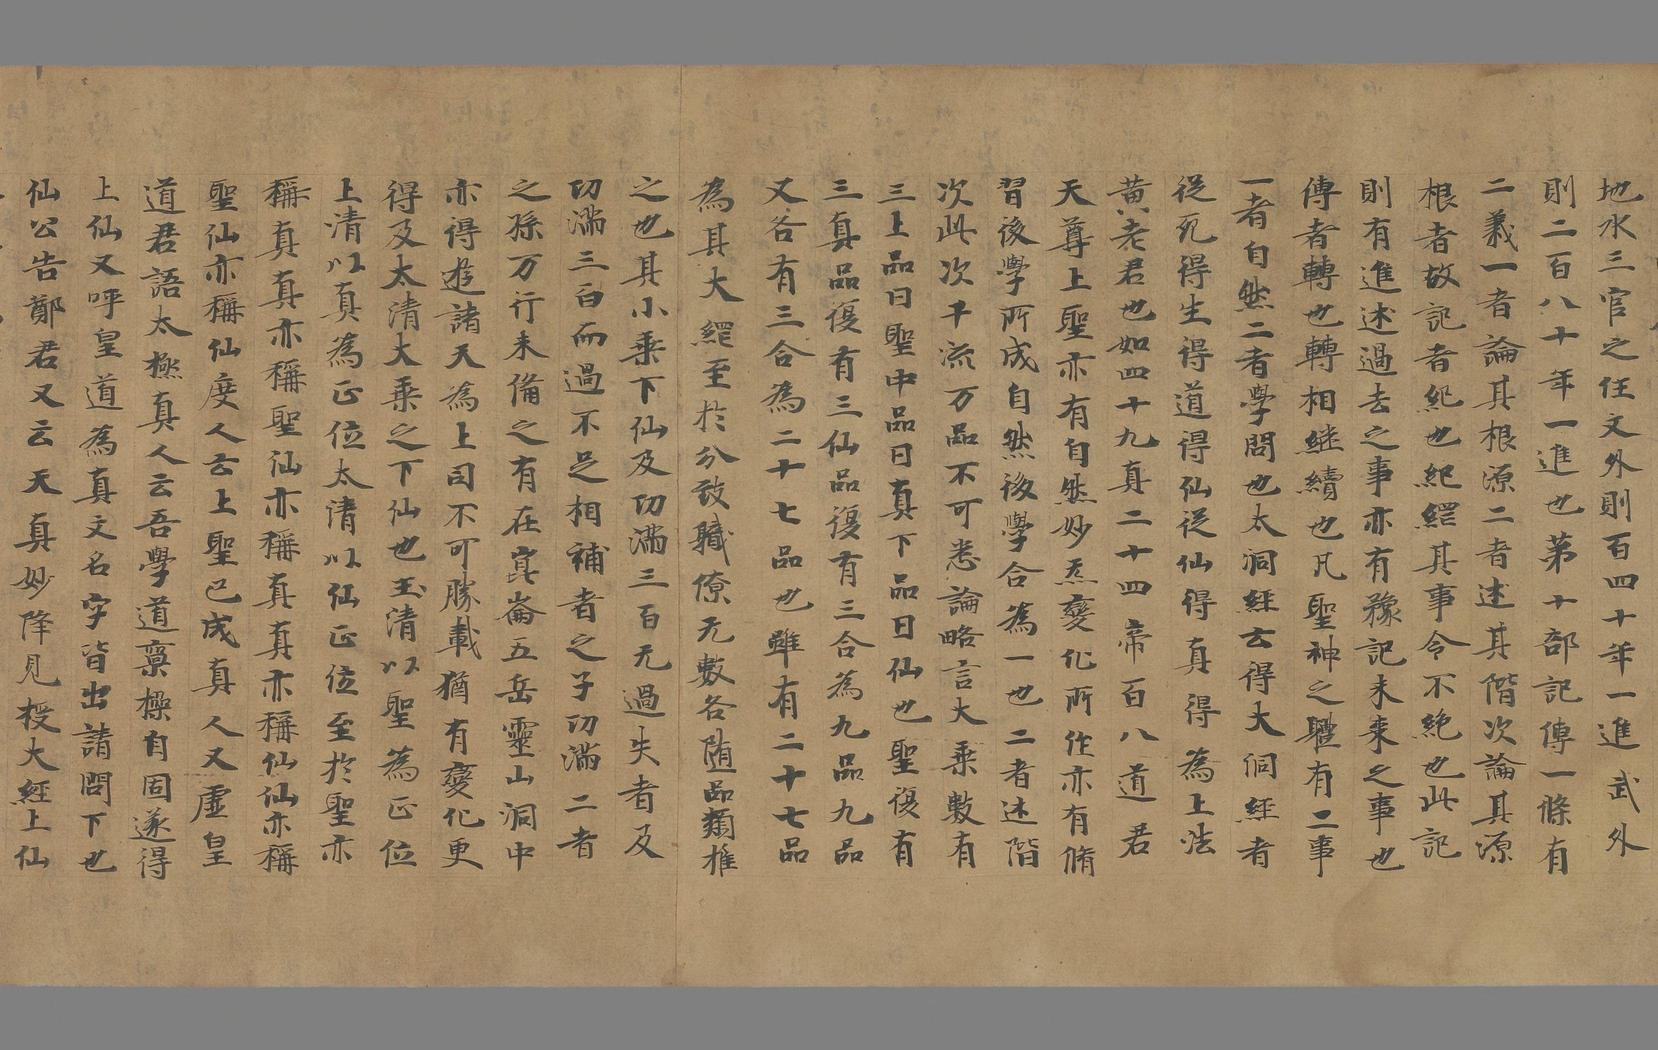 地水三官之任文外則百四十年一進武外
則二百八十年一進也第十部記傳一條有
二義一者論其根源二者述其階次論其源
根者故記者紀也紀綱其事令不絶也此記
則有進述過去之事亦有豫記未来之事也
傳者轉也轉相継續也凡聖神之軆有二事
一者自然二者學問也太洞經云得大洞經者
從死得生得道得仙從仙得真得為上法
黄老君也如四十九真二十四帝百八道君
天尊上聖亦有自然妙炁變化所作亦有脩
習後學所成自然後學合為一也二者述階
次此次千流万品不可悉論略言大乗數有
三上品曰聖中品曰真下品曰仙也聖復有
三真品復有三仙品復有三合為九品九品
又各有三合為二十七品也雖有二十七品
為其大綱至於分敀職僚无數各随品類推
之也其小乗下仙及功満三百无過失者及
功満三百而過不足相補者之子功満二者
之孫万行未備之有在崑崙五岳靈山洞中
亦得遊諸天為上司不可勝載猶有變化更
得及太清大乗之下仙也玉清以聖為正位
上清以真為正位太清以仙正位至於聖亦
稱真真亦稱聖仙亦稱真真亦稱仙仙亦稱
聖仙亦稱仙度人云上聖已成真人又虚皇
道君語太極真人云吾學道稟操自固遂得
上仙又呼皇道為真文名字皆出請問下也
仙公告鄭君又云天真妙降見授大經上仙